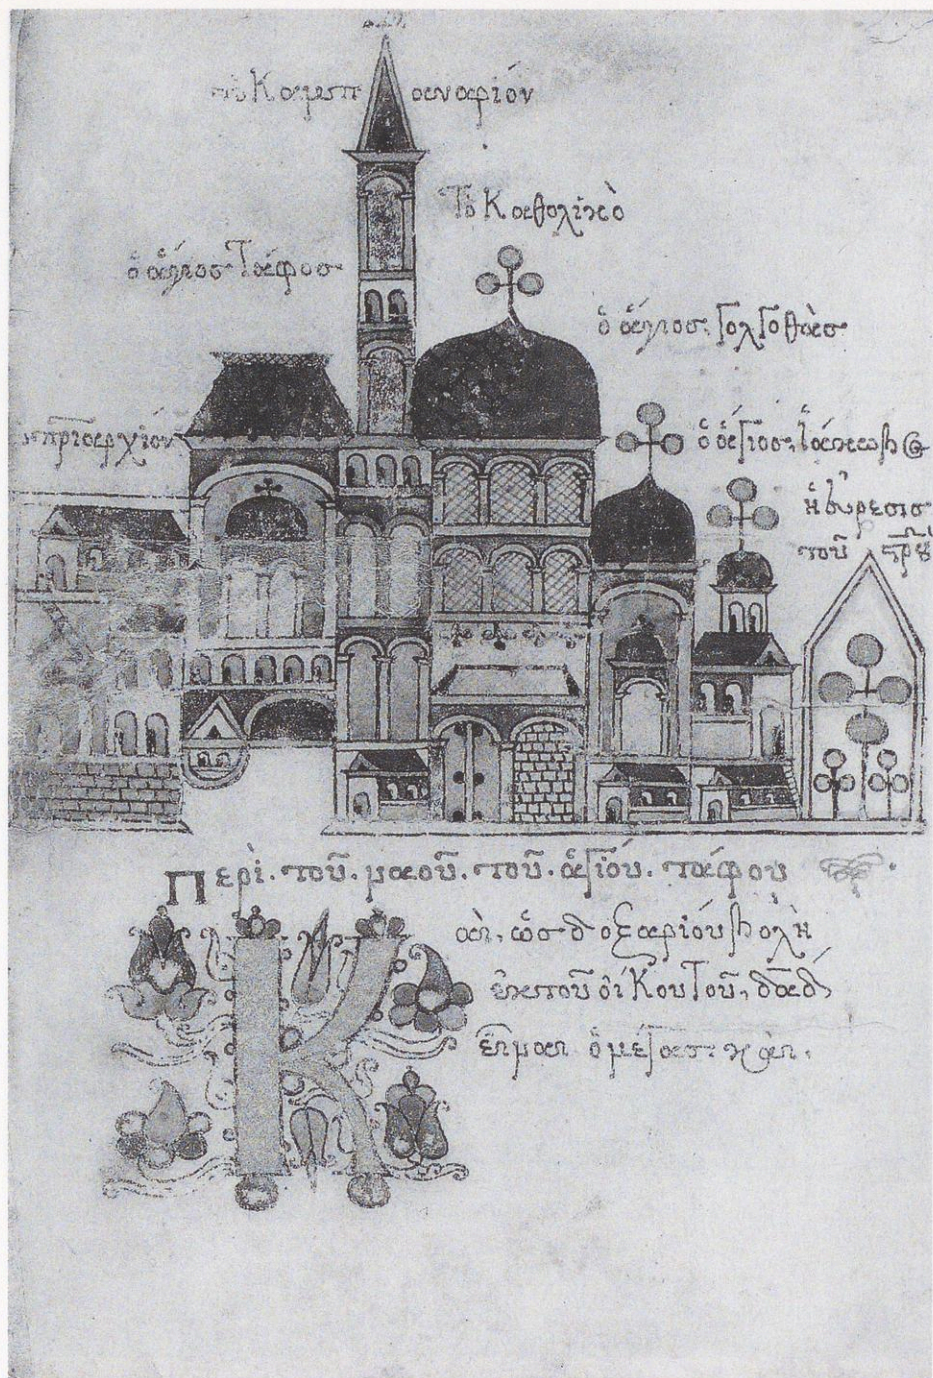 τὸ Καμπαναριόν
Τὸ Καθολικὸ
ὁ ἅγιος Τάφος
ὁ ἅγιος Γολγοθᾶς
πριαρχίον
ὁ ἅγιος Ἰάκωβ
ἡ εὕρεσις
τοῦ
Περὶ τοῦ ναοῦ τοῦ ἁγίου τάφου
Καὶ ὡς δοξαρίου βολὴ
ἐκ τοῦ οἴκου τοῦ δαδ
εἶναι ὁ μέγας καὶ